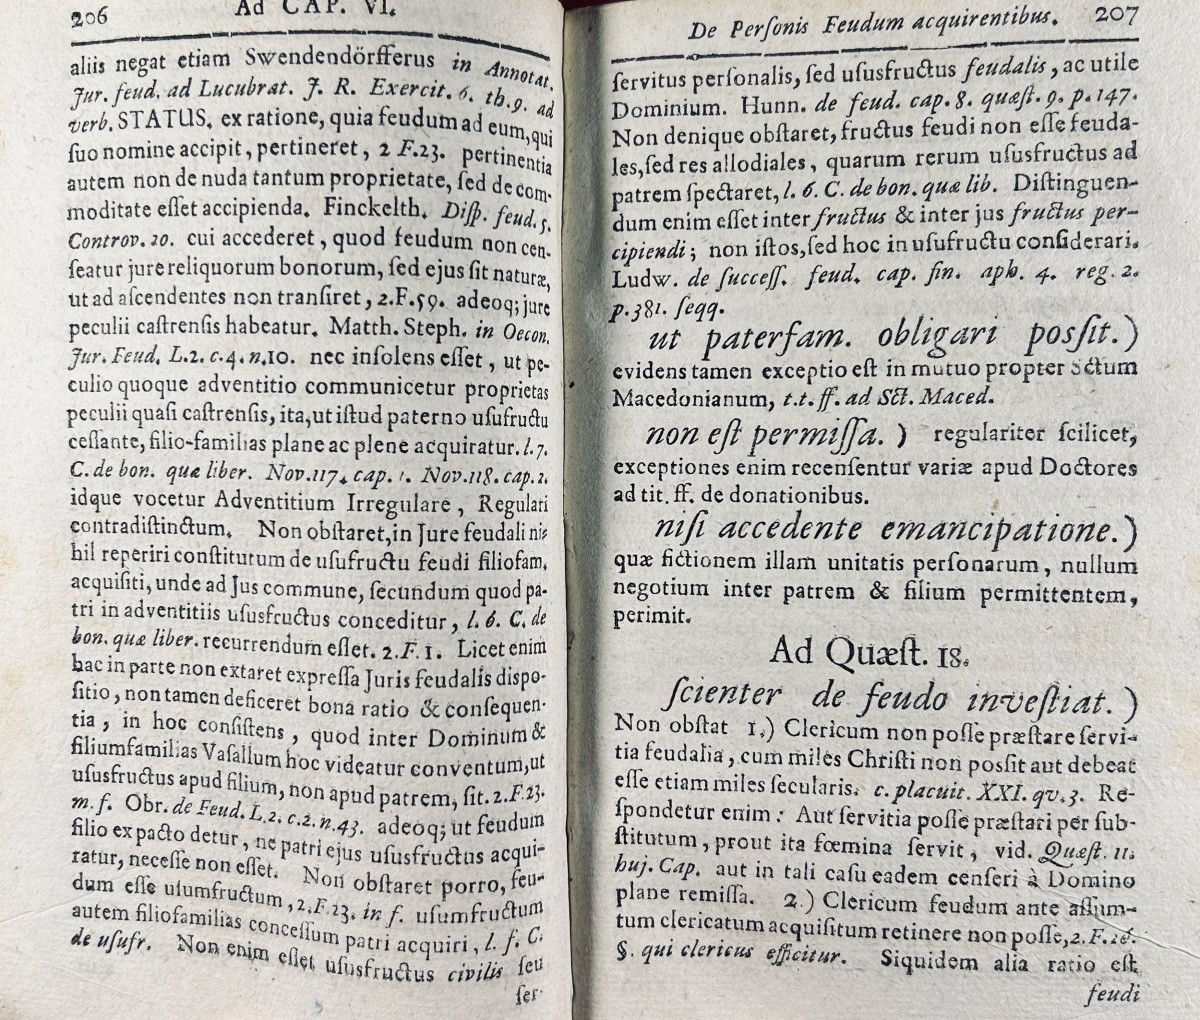 206 Ad CAP. VI.
aliis negat etiam Swendendörfferus in Annotat.
Jur. feud. ad Lucubrat. J. R. Exercit. 6. th. 9. ad
verb. STATUS. ex ratione, quia feudum ad eum, qui
ſuo nomine accipit, pertineret, 2 F. 23. pertinentia
autem non de nuda tantum proprietate, ſed de com-
moditate eſſet accipienda. Finckelth. Diſp. feud. 5.
Controv. 20. cui accederet, quod feudum non cen-
ſeatur jure reliquorum bonorum, ſed ejus ſit naturæ,
ut ad aſcendentes non tranſiret, 2. F. 59. adeoq; jure
peculii caſtrenſis habeatur. Matth. Steph. in Oecon.
Jur. Feud. L. 2. c. 4. n. 10. nec inſolens eſſet, ut pe-
culio quoque adventitio communicetur proprietas
peculii quaſi caſtrenſis, ita, ut iſtud paterno uſufructu
ceſſante, filio-familias plane ac plene acquiratur. l. 7.
C. de bon. quæ liber. Nov. 117. cap. 1. Nov. 118. cap. 2.
idque vocetur Adventitium Irregulare, Regulari
contradiſtinctum. Non obſtaret, in Jure feudali ni-
hil reperiri conſtitutum de uſufructu feudi filiofam.
acquiſiti, unde ad Jus commune, ſecundum quod pa-
tri in adventitiis uſusfructus conceditur, l. 6. C. de
bon. quæ liber. recurrendum eſſet. 2. F. 1. Licet enim
hac in parte non extaret expreſſa Juris feudalis dispo-
ſitio, non tamen deficeret bona ratio & conſequen-
tia, in hoc conſiſtens, quod inter Dominum &
filiumfamilias Vaſallum hoc videatur conventum, ut
uſusfructus apud filium, non apud patrem, ſit. 2. F. 23.
m. f. Obr. de Feud. L. 2. c. 2. n. 43. adeoq; ut feudum
filio ex pacto detur, ne patri ejus uſusfructus acqui-
ratur, neceſſe non eſſet. Non obſtaret porro, feu-
dum eſſe uſumfructum, 2. F. 23. in f. uſumfructum
autem filiofamilias conceſſum patri acquiri, l. f. C.
de uſufr. Non enim eſſet uſusfructus civilis ſeu
ſer-
De Perſonis Feudum acquirentibus. 207
ſervitus perſonalis, ſed uſusfructus feudalis, ac utile
Dominium. Hunn. de feud. cap. 8. quæſt. 9. p. 147.
Non denique obſtaret, fructus feudi non eſſe feuda-
les, ſed res allodiales, quarum rerum uſusfructus ad
patrem ſpectaret, l. 6. C. de bon. quæ lib. Diſtinguen-
dum enim eſſet inter fructus & inter jus fructus per-
cipiendi; non iſtos, ſed hoc in uſufructu conſiderari.
Ludw. de ſucceſſ. feud. cap. fin. aph. 4. reg. 2.
p. 381. ſeqq.
ut paterfam. obligari poſſit.)
evidens tamen exceptio eſt in mutuo propter Sctum
Macedonianum, t. t. ff. ad Sct. Maced.
non eſt permiſſa.) regulariter ſcilicet,
exceptiones enim recenſentur variæ apud Doctores
ad tit. ff. de donationibus.
niſi accedente emancipatione.)
quæ fictionem illam unitatis perſonarum, nullum
negotium inter patrem & filium permittentem,
perimit.
Ad Quæſt. 18.
ſcienter de feudo inveſtiat.)
Non obſtat 1.) Clericum non poſſe præſtare ſervi-
tia feudalia, cum miles Chriſti non poſſit aut debeat
eſſe etiam miles ſecularis. c. placuit. XXI. qv. 3. Re-
ſpondetur enim: Aut ſervitia poſſe præſtari per ſub-
ſtitutum, prout ita fœmina ſervit, vid. Quæſt. 11.
huj. Cap. aut in tali caſu eadem cenſeri à Domino
plane remiſſa. 2.) Clericum feudum ante aſſum-
tum clericatum acquiſitum retinere non poſſe, 2. F. 26.
§. qui clericus efficitur. Siquidem alia ratio eſt
feudi